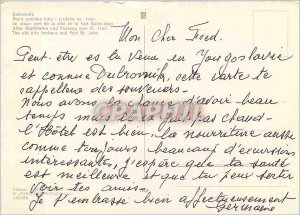 Dubrovnik
Stara gradska luka i tvrdjava sv. Ivan
Le vieux port de la cité et le fort Saint-Jean
Alter Stadthafen und Festung von St. Ivan
The old city harbour and Fort St. John
Mon Cher Fred.
Peut-être es tu venu en Yougoslavie
et connue Dubrovnik, cette carte te
rappellera des souvenirs
Nous avons la chance d'avoir beau
temps mais il ne fait pas chaud
l'Hôtel est bien, la nourriture aussi
comme toujours beaucoup d'excursions
intéressantes, j'espère que ta santé
est meilleure et que tu peux sortir
voir tes amis
Je t'embrasse bien affectueusement
Germaine